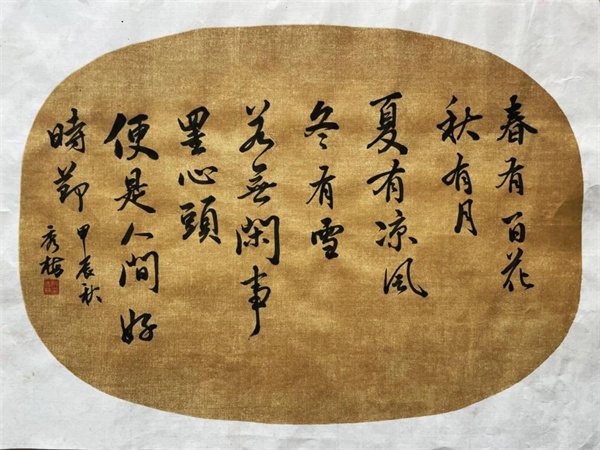 春有百花
秋有月
夏有凉风
冬有雪
若無閑事
罣心頭
便是人間好
時節
甲辰秋
秀梅